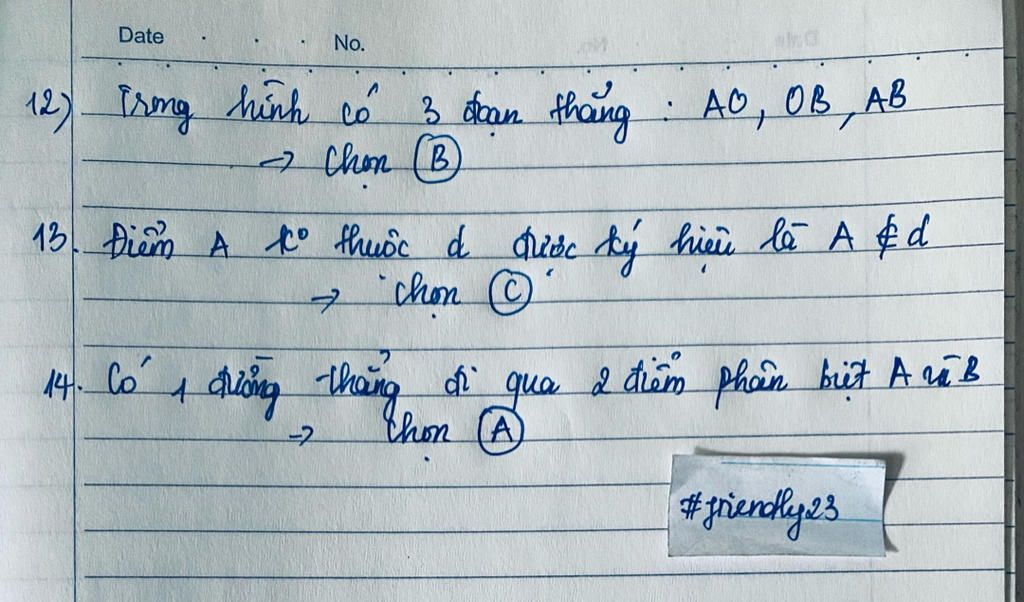 Date . . . No.
12) Trong hình có 3 đoạn thẳng : AO, OB, AB
→ Chọn B
13. Điểm A ko thuộc d được ký hiệu là A ∉ d
→ Chọn C
14. Có 1 đường thẳng đi qua 2 điểm phân biệt A và B
→ Chọn A
#friendly23